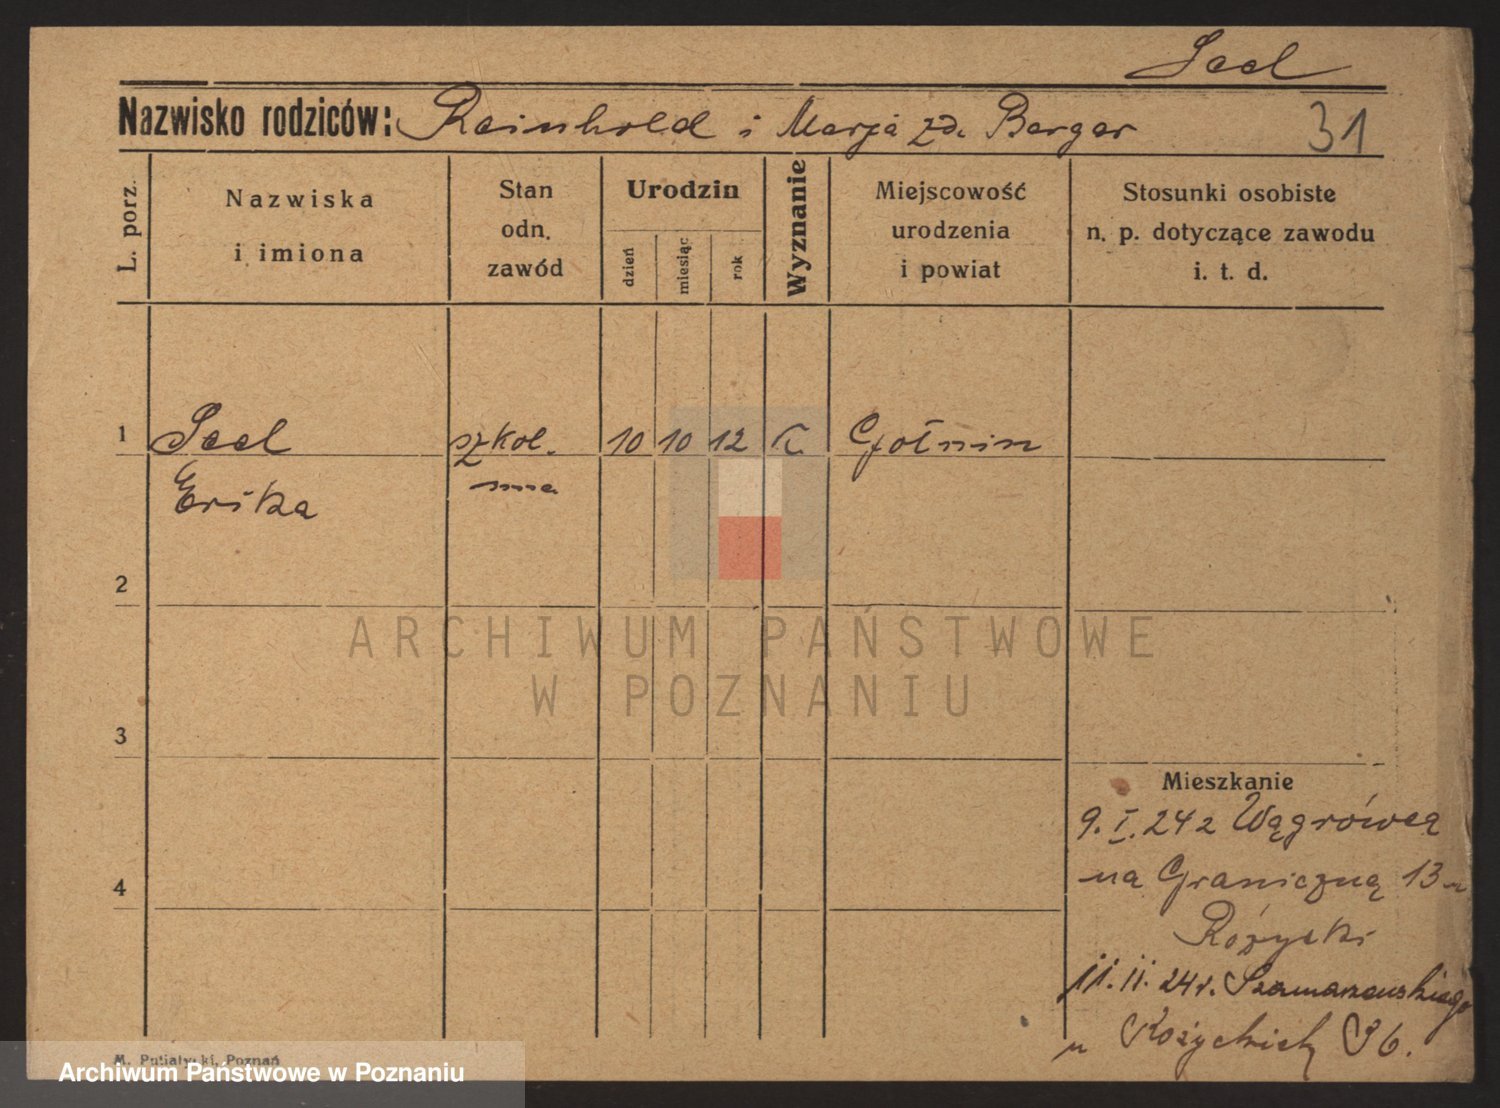 Seel
Nazwisko rodziców: Reinhold i Marja zd. Berger 31
L. porz.
Nazwiska
i imiona
Stan
odn.
zawód
Urodzin
dzień
miesiąc
rok
Wyznanie
Miejscowość
urodzenia
i powiat
Stosunki osobiste
n. p. dotyczące zawodu
i. t. d.
1 Seel szkol. 10 10 12 Gołmin
Erika
2
3
4
Mieszkanie
9. I. 24 z Wągrówca
na Graniczną 13 u
Różycki
11. II. 24 r. Szamarzewskiego
u Różyckich 36.
M. Putiatycki, Poznań
ARCHIWUM PAŃSTWOWE
W POZNANIU
Archiwum Państwowe w Poznaniu